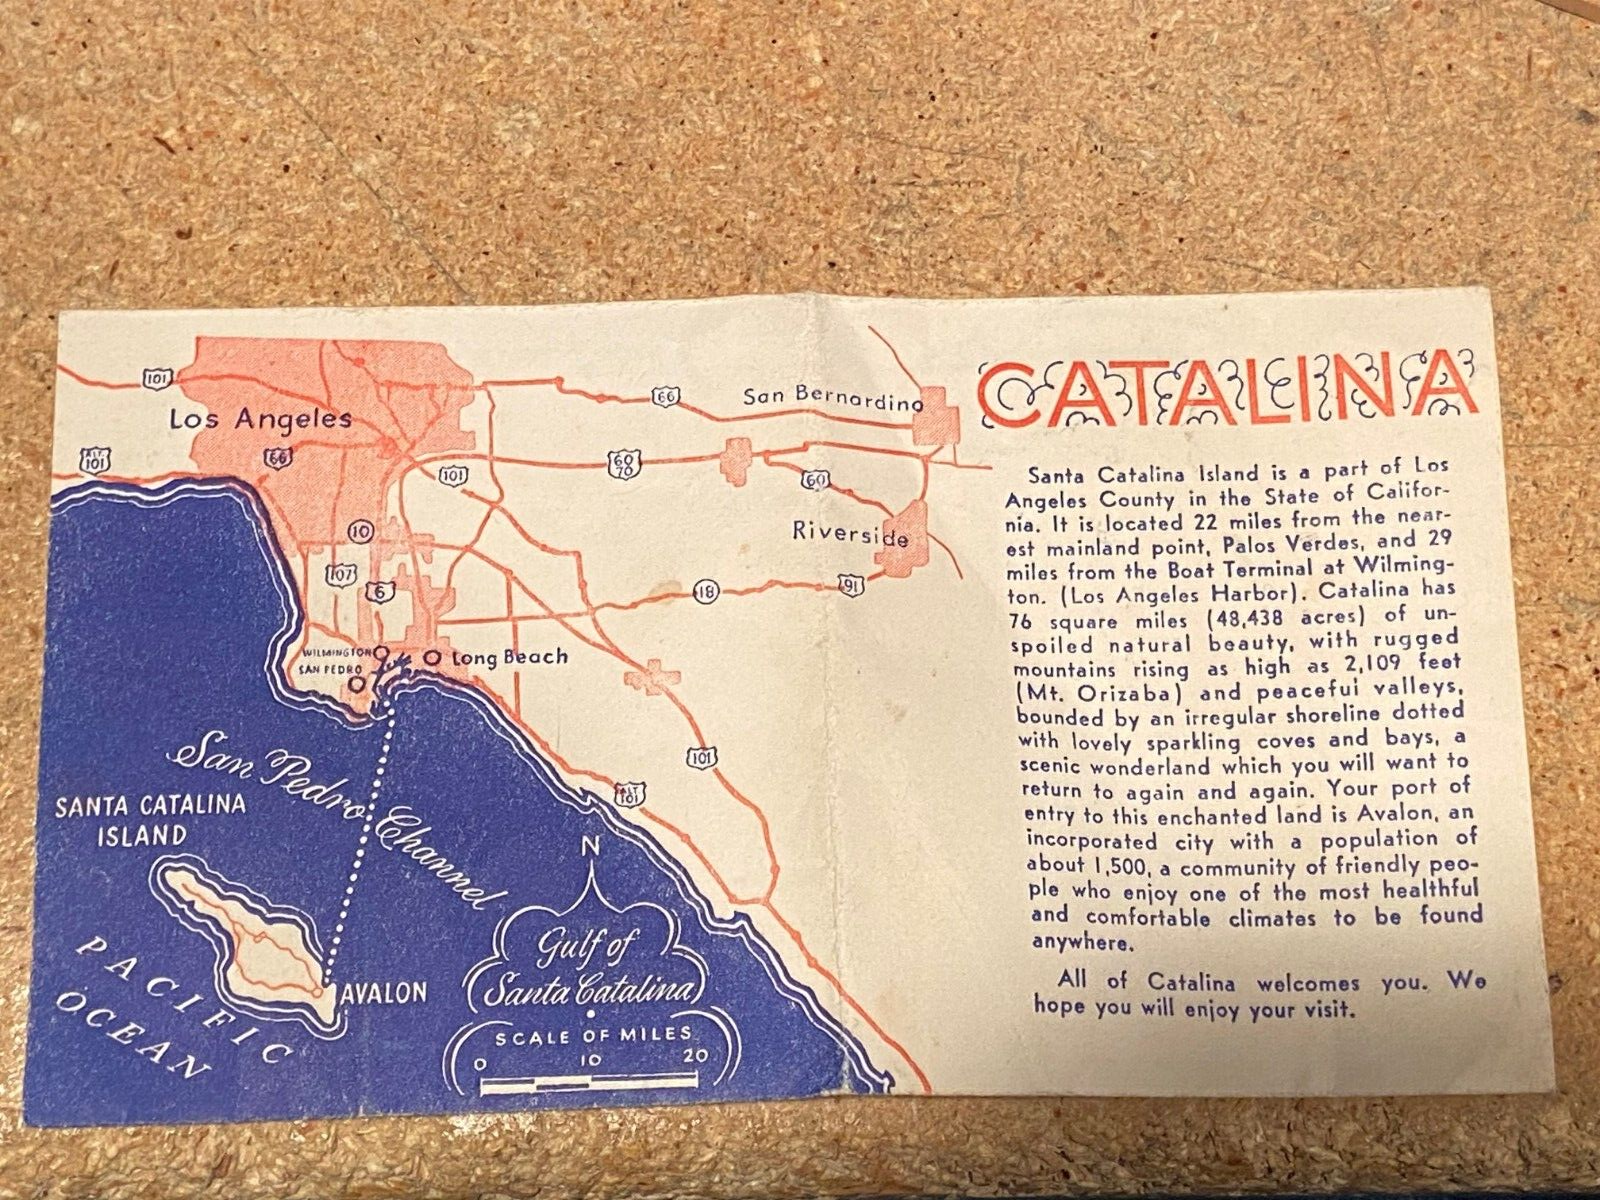 101
Los Angeles
66
San Bernardino
ALT.
101
66
101
60
70
60
10
Riverside
107
6
18
91
WILMINGTON
SAN PEDRO
Long Beach
101
ALT
101
San Pedro Channel
SANTA CATALINA
ISLAND
AVALON
PACIFIC
OCEAN
N
Gulf of
Santa Catalina
SCALE OF MILES
0 10 20
CATALINA
Santa Catalina Island is a part of Los
Angeles County in the State of Califor-
nia. It is located 22 miles from the near-
est mainland point, Palos Verdes, and 29
miles from the Boat Terminal at Wilming-
ton. (Los Angeles Harbor). Catalina has
76 square miles (48,438 acres) of un-
spoiled natural beauty, with rugged
mountains rising as high as 2,109 feet
(Mt. Orizaba) and peaceful valleys,
bounded by an irregular shoreline dotted
with lovely sparkling coves and bays, a
scenic wonderland which you will want to
return to again and again. Your port of
entry to this enchanted land is Avalon, an
incorporated city with a population of
about 1,500, a community of friendly peo-
ple who enjoy one of the most healthful
and comfortable climates to be found
anywhere.
All of Catalina welcomes you. We
hope you will enjoy your visit.